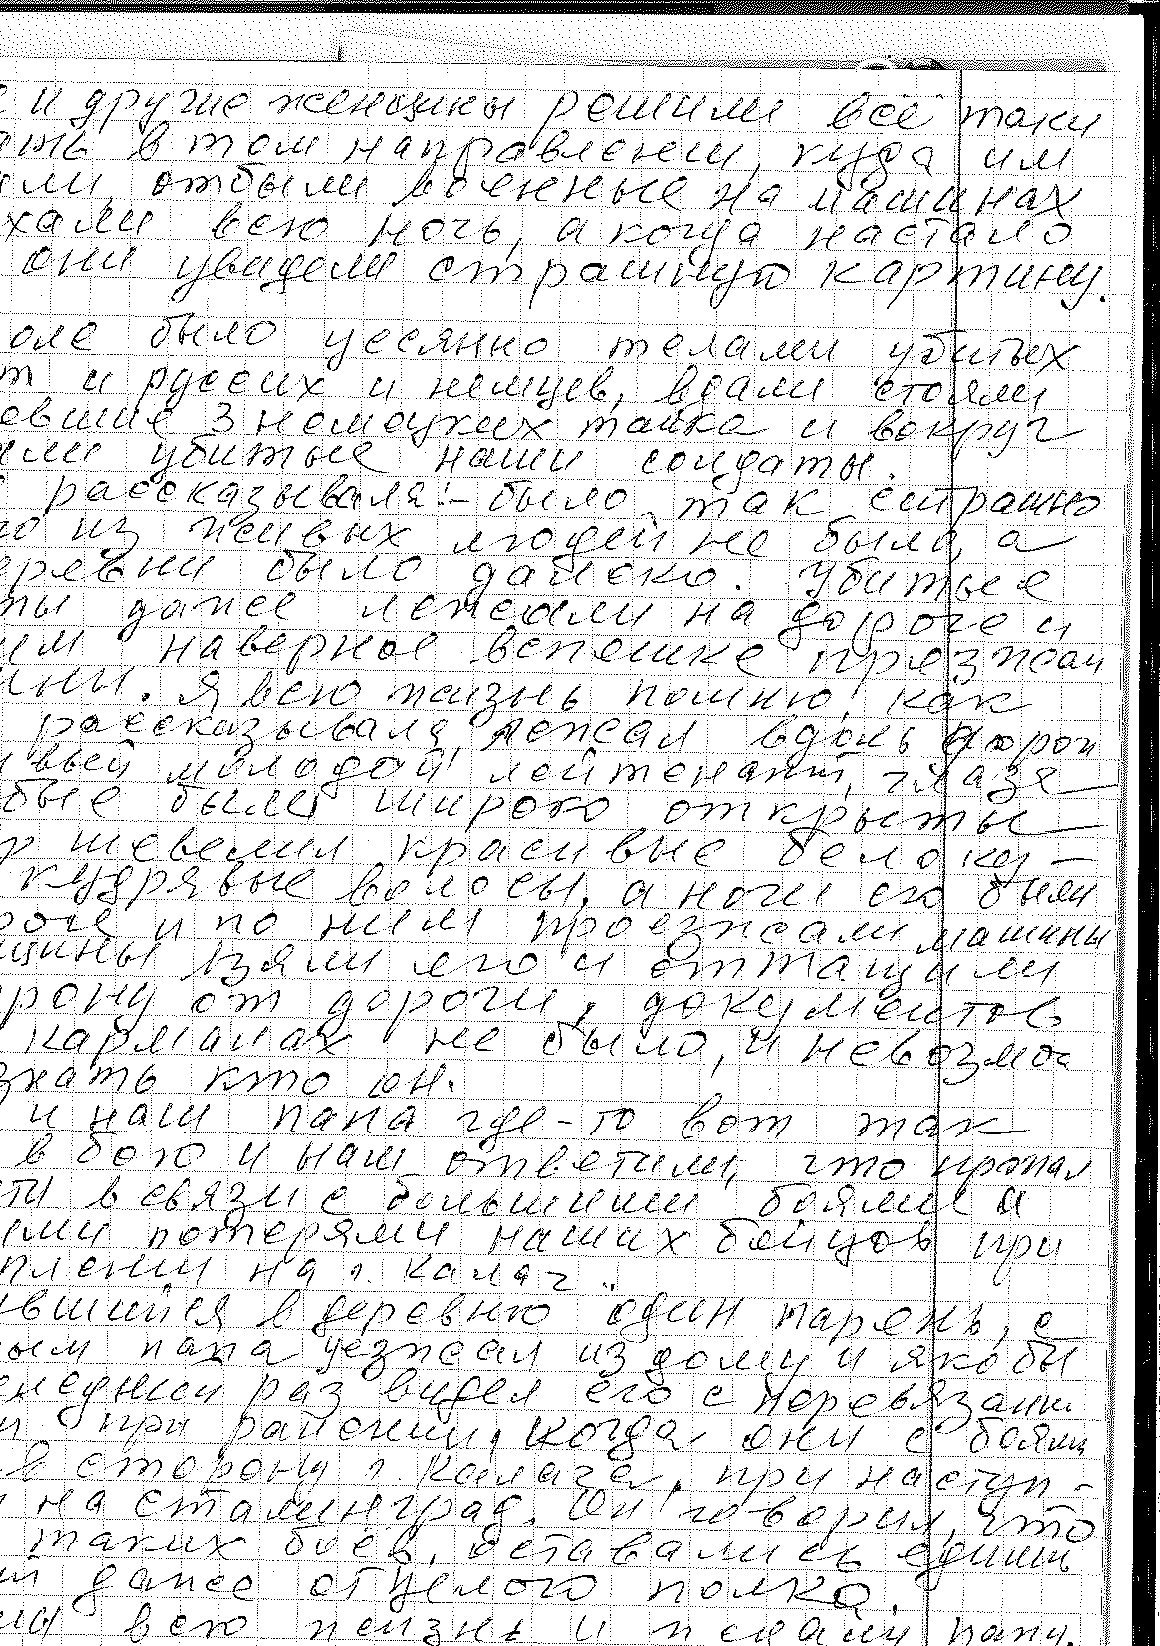 и другие женщины решили всё таки
в том направлении, куда им
отбыли военные на машинах
хали всю ночь, а когда настало
они увидели страшную картину.
оле было усеянно телами убитых
и русских и немцев, вдали стояли
евшие 3 немецких танка и вокруг
убитые наши солдаты.
рассказывала:- было так страшно
из живых людей не было, а
еревни было далеко. Убитые
ты даже лежали на дороге и
им наверное вспешке проезжали
ины. Я всю жизнь помню, как
рассказывала, лежал вдоль дорог
ивый молодой лейтенант, глаза
бые были широко открыты
р шевелил красивые белоку-
кудрявые волосы, а ноги его были
роге и по ним проезжали машины
щины взяли его и оттащили
орону от дороги, документов
карманах не было, и невозмо
знать кто он.
и наш папа где-то вот так
в бою и нам ответили, что пропал
сти в связи с большими боями и
ими потерями наших бойцов при
плении на г. Калач..
ившийся в деревню один парень, с
ым папа уезжал из дому и якобы
енедний раз видел его с перевязанн
при ранении, когда они с боями
в сторону г. Калача, при наступ-
на Сталинград. Он говорил, что
таких боев, оставались единиц
даже от целого полка.
всю жизнь и искали папу.